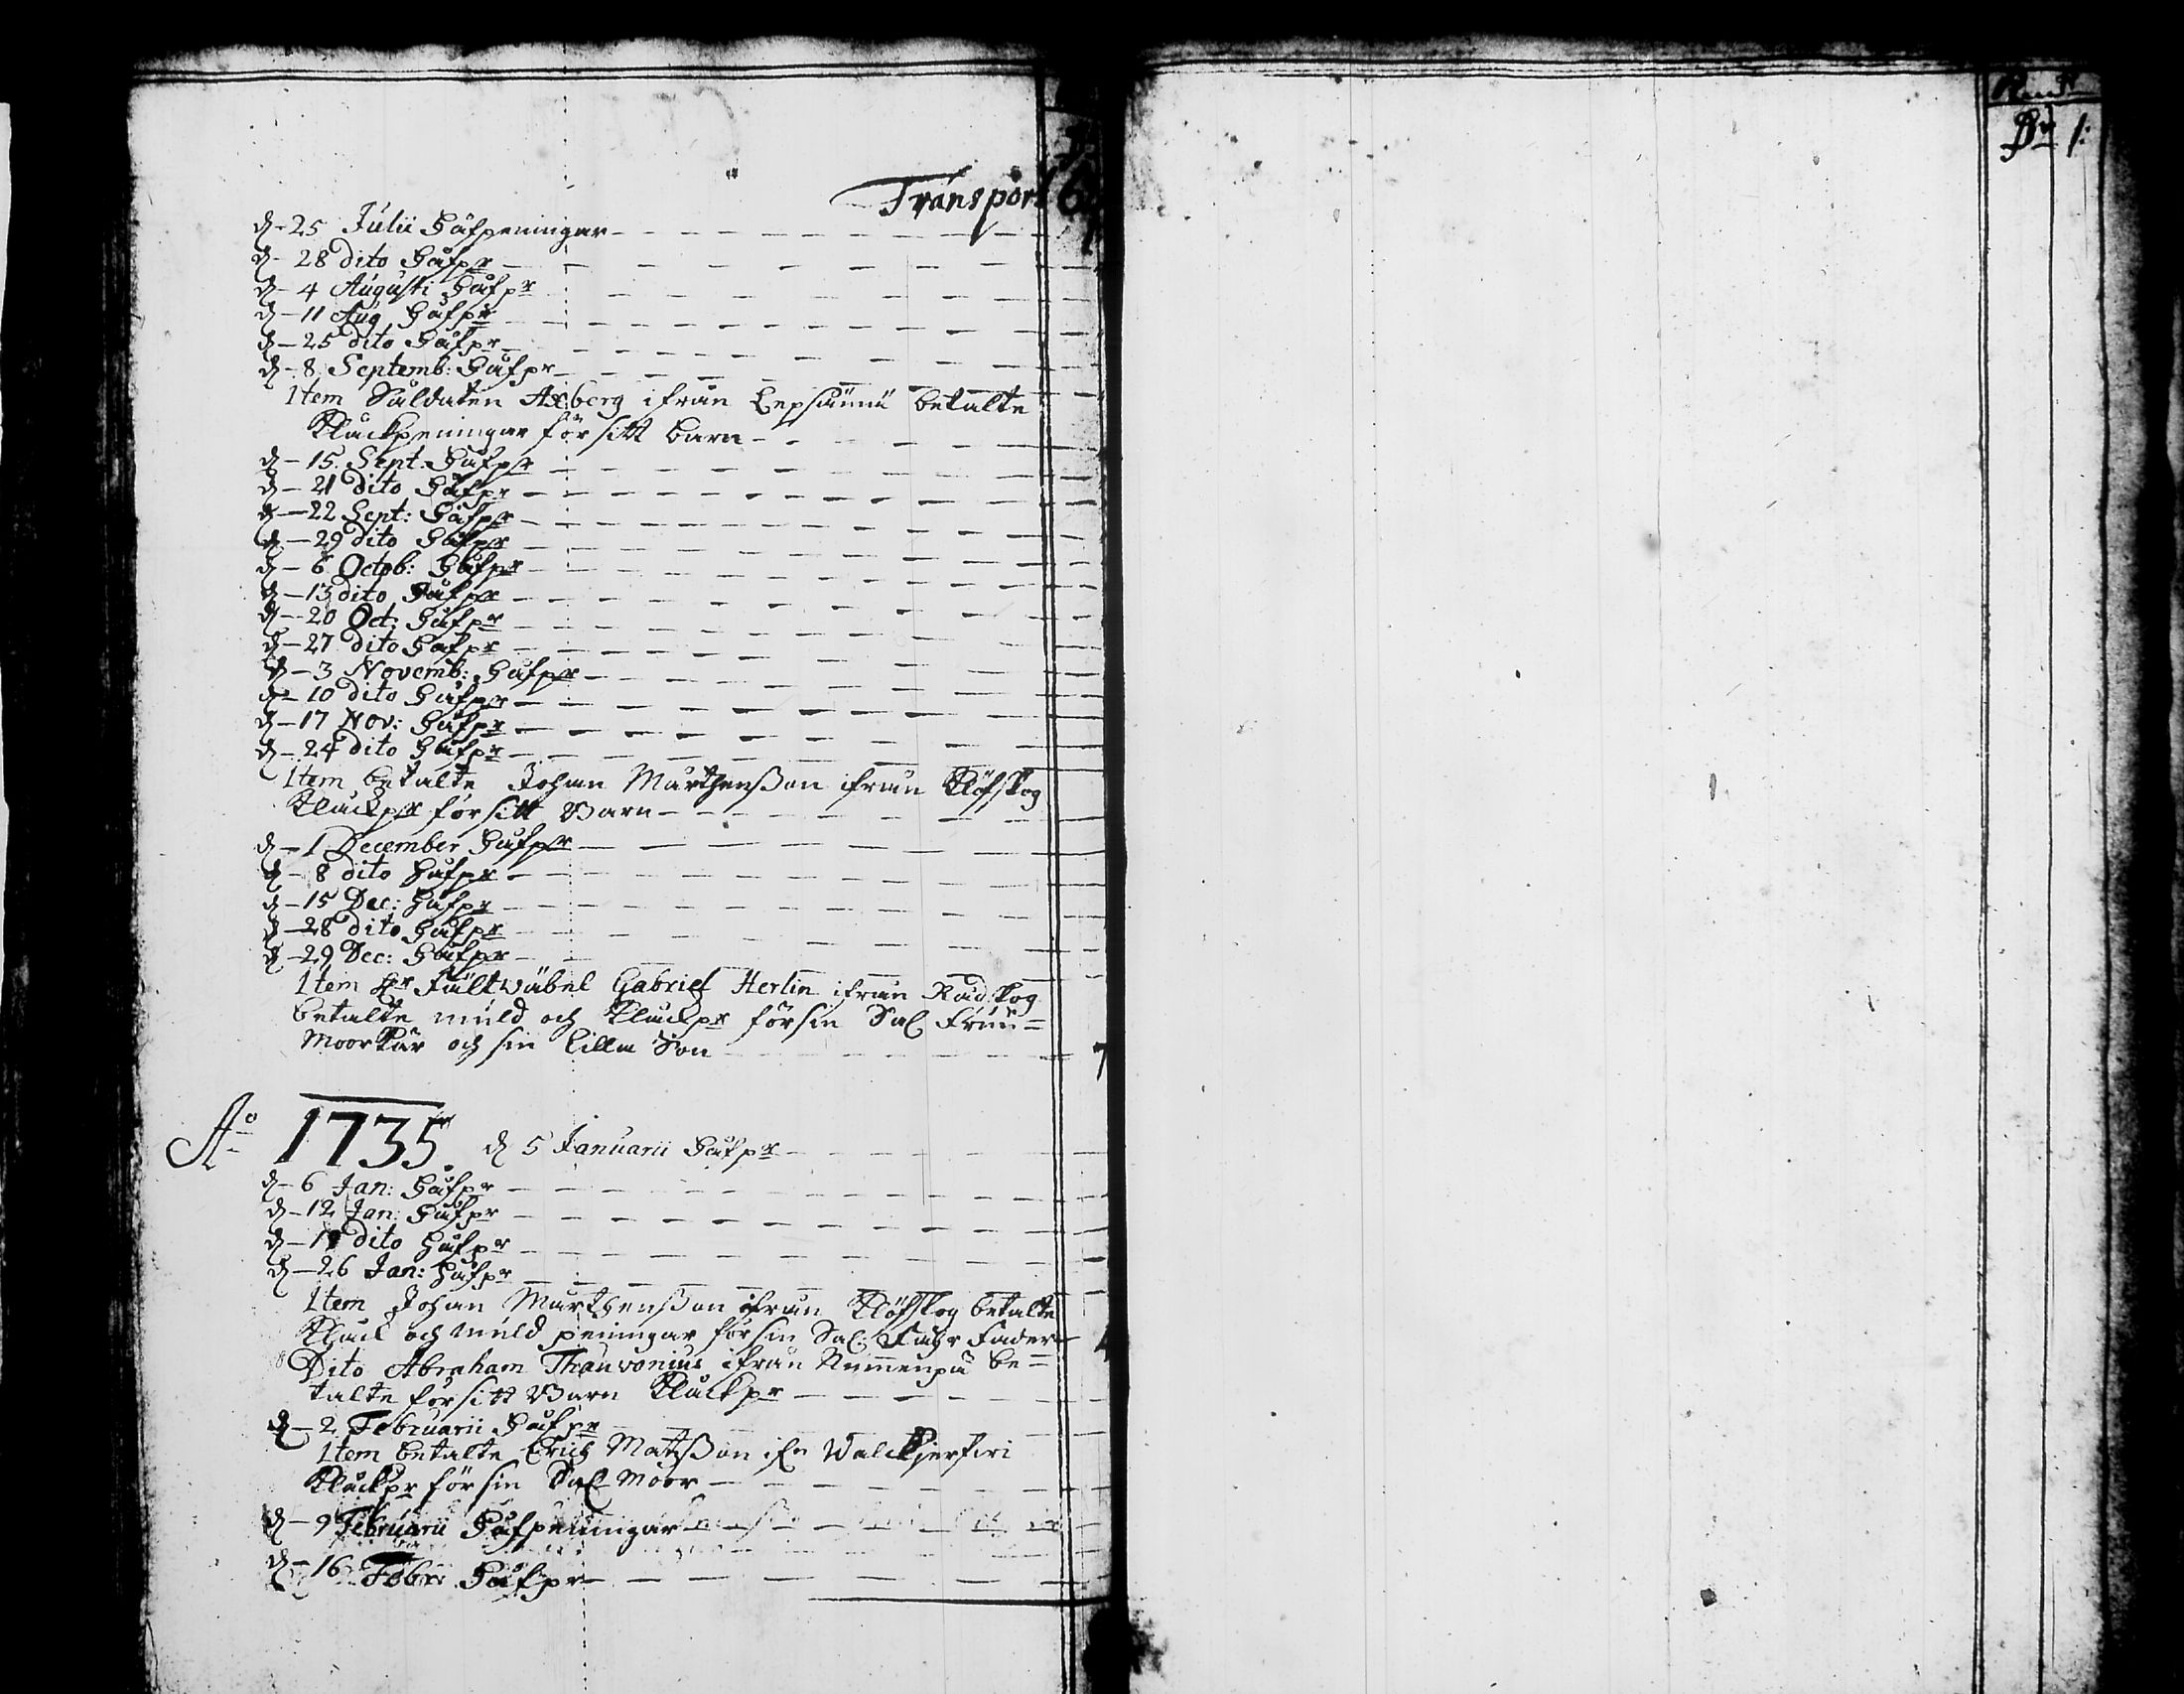 Transport
d. 25 Julii Håfpeningar
d. 28 dito Håfpr
d. 4 Augusti Håfpr
d. 11 Aug Håfpr
d. 25 dito Håfpr
d. 8 Septemb: Håfpr
Item Såldaten Axberg ifrån Lepsämä betalte
Kläckpeningar för sitt barn
d. 15. Sept: Håfpr
d. 21 dito Håfpr
d. 22 Sept: Håfpr
d. 29 dito Håfpr
d. 6 Octob: Håfpr
d. 13 dito Håfpr
d. 20 Oct: Håfpr
d. 27 dito Håfpr
d. 3 Novemb: Håfpr
d. 10 dito Håfpr
d. 17 Nov: Håfpr
d. 24 dito Håfpr
Item betalte Johan Mårthenßon ifrån Klöfskog
Kläckpr för sitt Barn
d. 1 December Håfpr
d. 8 dito Håfpr
d. 15 Dec: Håfpr
d. 28 dito Håfpr
d. 29 Dec: Håfpr
Item Hr Fältwäbel Gabriel Herlin ifrån Rådskog
betalte muld och Kläckpr för sin Sal Fruu=
Moor Kär och sin lilla Son
Ao 1735. d 5 Januarii Håfpr
d. 6 Jan: Håfpr
d. 12 Jan: Håfpr
d. 19 dito Håfpr
d. 26 Jan: Håfpr
Item Johan Mårthenßon ifrån Klöfskog betalte
Kläck och muld peningar för sin Sal: Fader
Dito Abraham Thauvonius ifrån Nummenpä be=
talte för sitt Barn Kläckpr
d. 2 Februarii Håfpr
Item betalte Erich Matzßon ifn Walckjerfwi
Kläckpr för sin Sal Moor
d. 9 Februarii Håfpeningar
d. 16 Febr: Håfpr